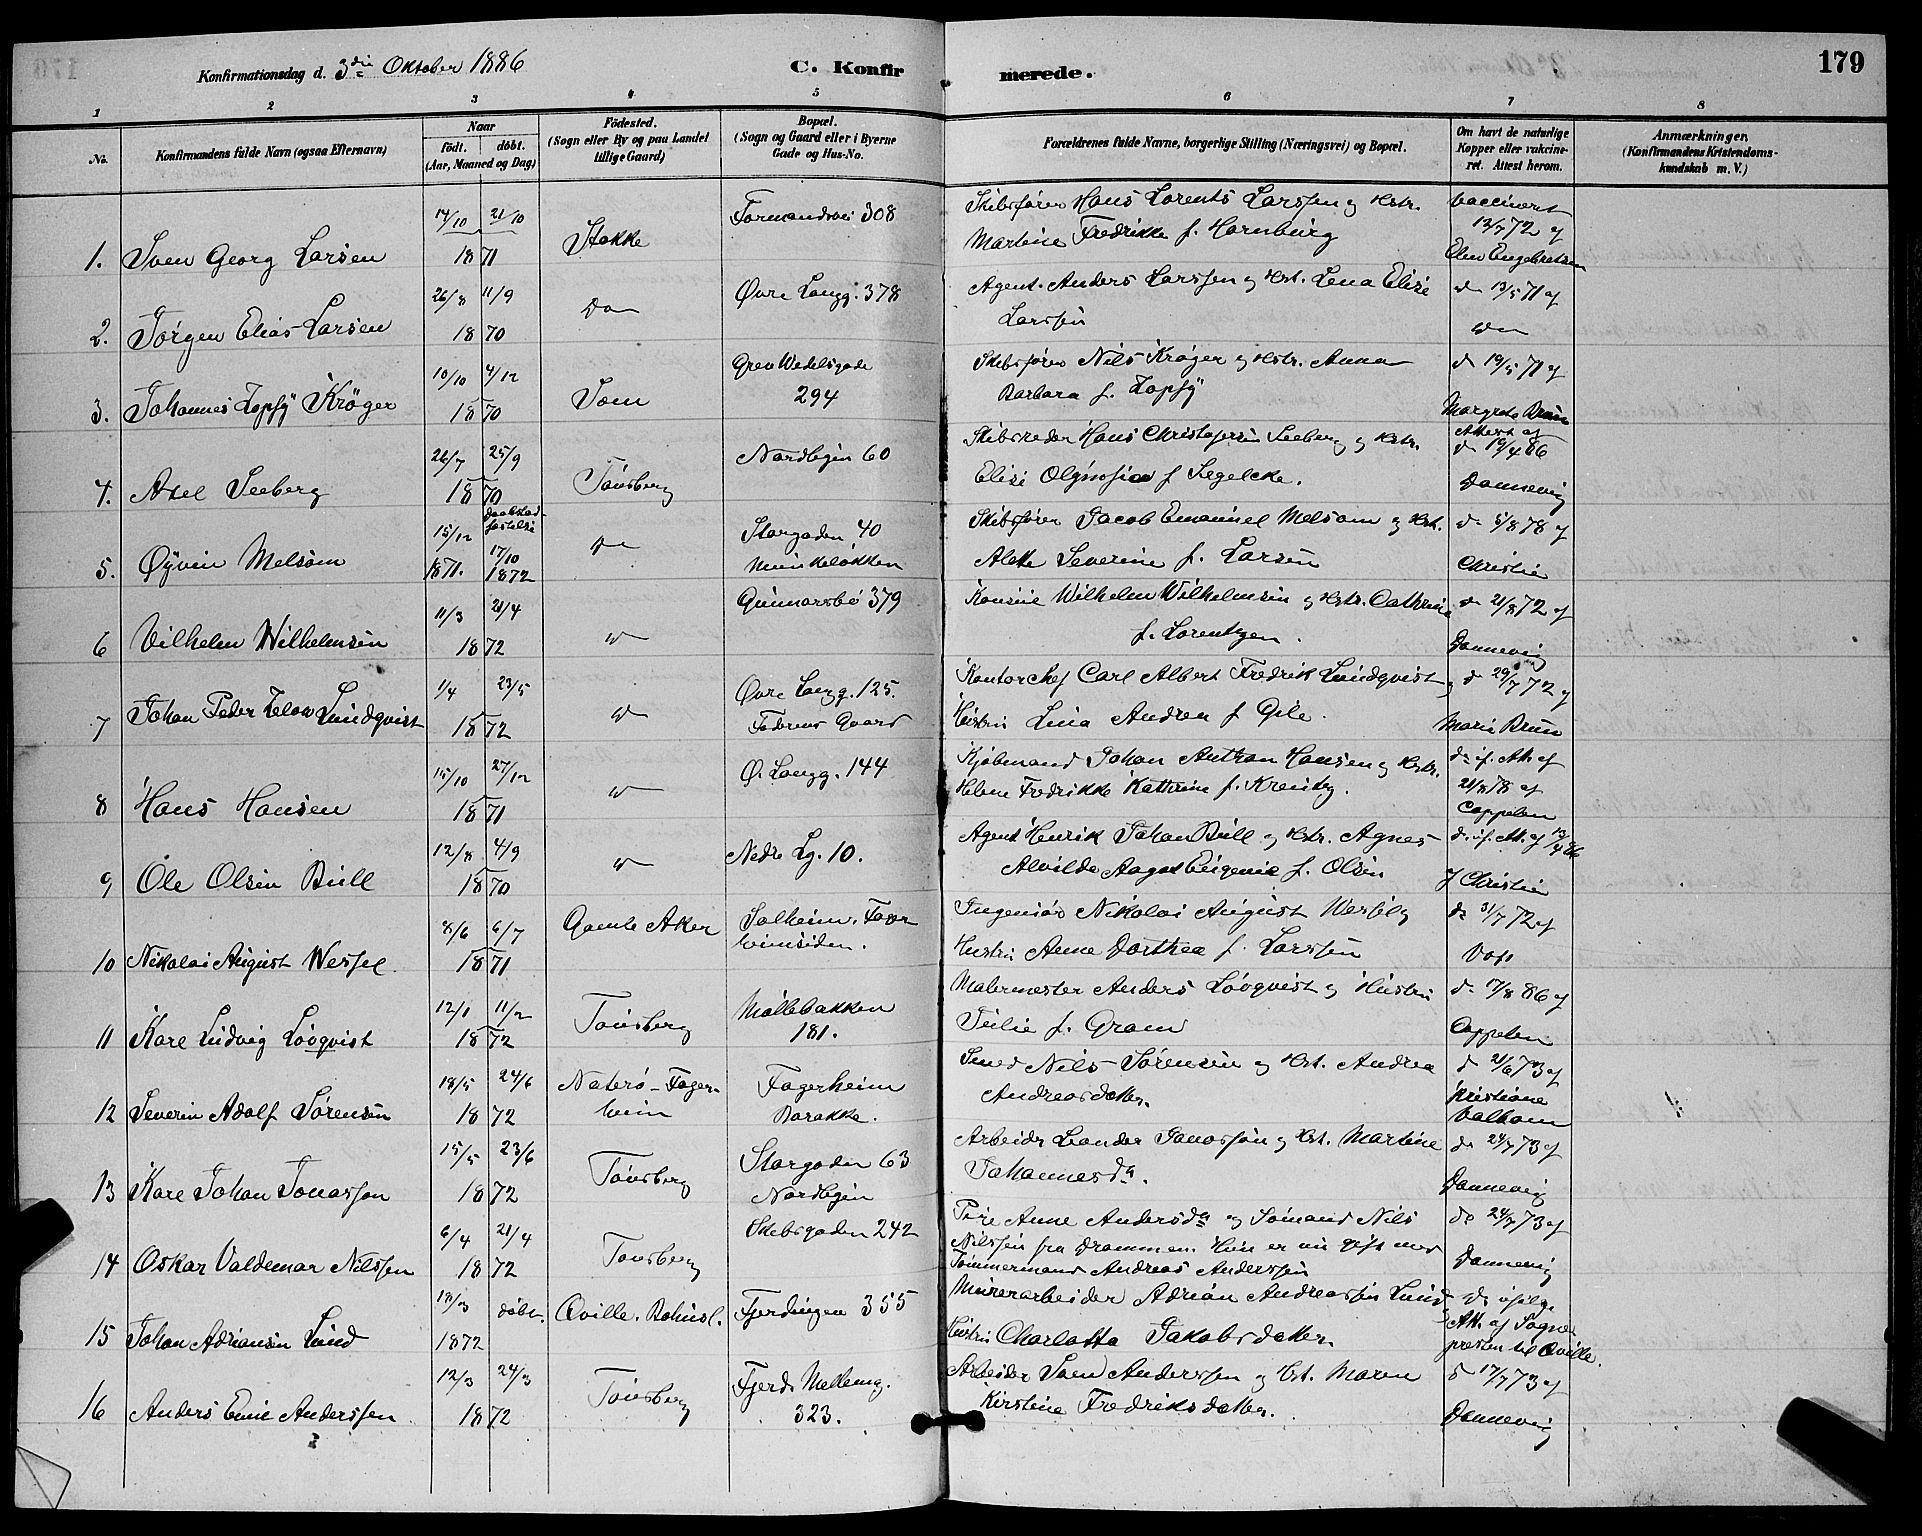 Konfirmationsdag d. 3die Oktober 1886
C. Konfirmerede.
179
1 2 3 4 5 6 7 8
No.
Konfirmandens fulde Navn (ogsaa Efternavn)
Naar
födt. döbt.
(Aar, Maaned og Dag)
Födested.
(Sogn eller By og paa Landet
tillige Gaard)
Bopæl.
(Sogn og Gaard eller i Byerne
Gade og Hus-No.
Forældrenes fulde Navne, borgerlige Stilling (Næringsvei) og Bopæl.
Om havt de naturlige
Kopper eller vakcine-
ret. Attest herom.
Anmærkninger.
(Konfirmandens Kristendoms-
kundskab m. V.)
1. Sven Georg Larsen
14/10 21/10
1871
Stokke
Formandsvei 308
Skibsfører Hans Lorents Larssen og Hstr.
Martine Fredrikke f. Hornburg
vaccineret
13/7 72 af
Elen Engebretsen
2. Jørgen Elias Larsen
26/8 11/9
1870
Do
Øvre Langg. 378
Agent Anders Larssen og Hst. Lena Elise
Larssen
do 13/5 71 af
do
3. Johannes Zopfy Krøger
10/10 4/12
1870
Sem
Grev Wedelsgade
294
Skibsfører Nils Krøger og Hstr. Anna
Barbara f. Zopfy
d 19/5 71 af
Margrete Bruun
4. Axel Seeberg
26/7 25/9
1870
Tønsberg
Nordbyen 60
Skibsreder Hans Christofersen Seeberg og Hstr.
Elise f. Segelcke.
Attest af
do 19/4 86
Dannevig
5. Øyvin Melsom
15/12
1871.
17/10
1872
do
Storgaden 40
Munkeløkken
Skibsfører Jacob Emanuel Melsom og Hst.
Alette Severine f. Larsen
do 5/8 78 af
Christie
6 Vilhelm Wilhelmsen
11/3 21/4
1872
do
Gunnarsbø 379
Konsul Wilhelm Wilhelmsen og Hstr. Cathrine
f. Lorentzen.
do 21/8 72 af
Dannevig
7 Johan Peder Lundqvist
1/4 23/5
1872
do
Øvre Langg. 125.
Gaard
Kontorchef Carl Albert Fredrik Lundqvist og
Hustru Lina Andrea f. Gile.
d 29/7 72 af
Marie Bruun
8 Hans Hansen
15/10 27/12
1871
do
Ø. Langg. 144
Kjøbmand Johan Anthon Hansen og Hstr.
Helene Fredrikke Kathrine f.
do if. Att. af
21/8 78 af
Cappelen
9 Ole Olsen Bull
12/8 4/9
1870
do
Nedre Lg. 10.
Agent Henrik Johan Bull og Hstr. Agnes
Alvilde Eugenie f. Olsen
do if. Att. af 13/4 86
af Christie
10 Nikolai August Wessel
8/6 6/7
1871
Gamle Aker
Solheim. Fager-
heimsiden.
Ingeniør Nikolai August Wessel og
Hustru Anne Dorthea f. Larssen
do 31/7 72 af
Voss
11 Karl Ludvig Løvqvist
12/1 11/2
1872
Tønsberg
Møllebakken
181.
Malermester Anders Løvqvist og Hustru
Julie f. Gram
do 17/8 86 af
Cappelen
12 Severin Adolf Sørensen
18/5 24/6
1872
Nøterø - Fager-
heim
Fagerheim
Barakke.
Smed Nils Sørensen og Hst. Andrea
Andreasdatter.
d 21/6 73 af
Kristiane
Valbom
13 Karl Johan Jonassen
15/5 23/6
1872
Tønsberg
Storgaden 63
Nordbyen
Arbeider Leander Jonassen og Hst. Martine
Johannesda.
do 24/7 73 af
Dannevig
14 Oskar Valdemar Nilssen
6/4 21/4
1872
Tønsberg
Skibsgaden 242
Pige Anne Andersda og Sømand Nils
Nilssen fra Drammen. Hun er nu gift med
Tømmermand Andreas Anderssen
do 24/7 73 af
Dannevig
15 Johan Adriansen Lund
18/3 døbt.
1872
Qville. Bohusl.
Fjerdingen 355
Murerarbeider Adrian Andreassen Lund
Hustru Charlotta Jakobsdatter.
do ifølge
Att. af Sogne-
presten til Qville.
16 Anders Emil Anderssen
12/3 24/3
1872
Tønsberg
Fjerd. Mellemg.
323.
Arbeider Sven Anderssen og Hst. Maren
Kirstine Fredriksdatter.
d 17/7 73 af
Dannevig